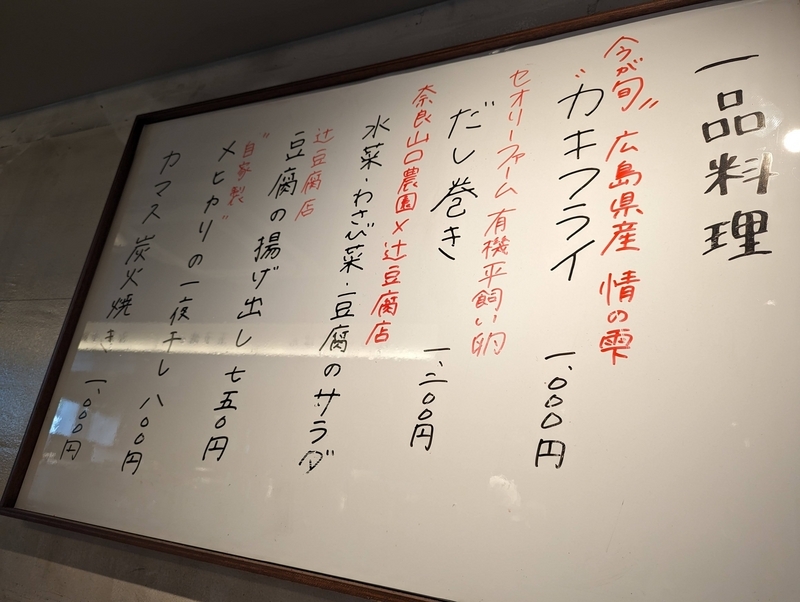 一品料理
"今が旬" 広島県産 情の雫
カキフライ 一、〇〇〇円
セオリーファーム 有機平飼い卵
だし巻き 一、二〇〇円
奈良山口農園×辻豆腐店
水菜・わさび菜・豆腐のサラダ
辻豆腐店
豆腐の揚げ出し 七五〇円
"自家製"
メヒカリの一夜干し 八〇〇円
カマス炭火焼き 一、〇〇〇円